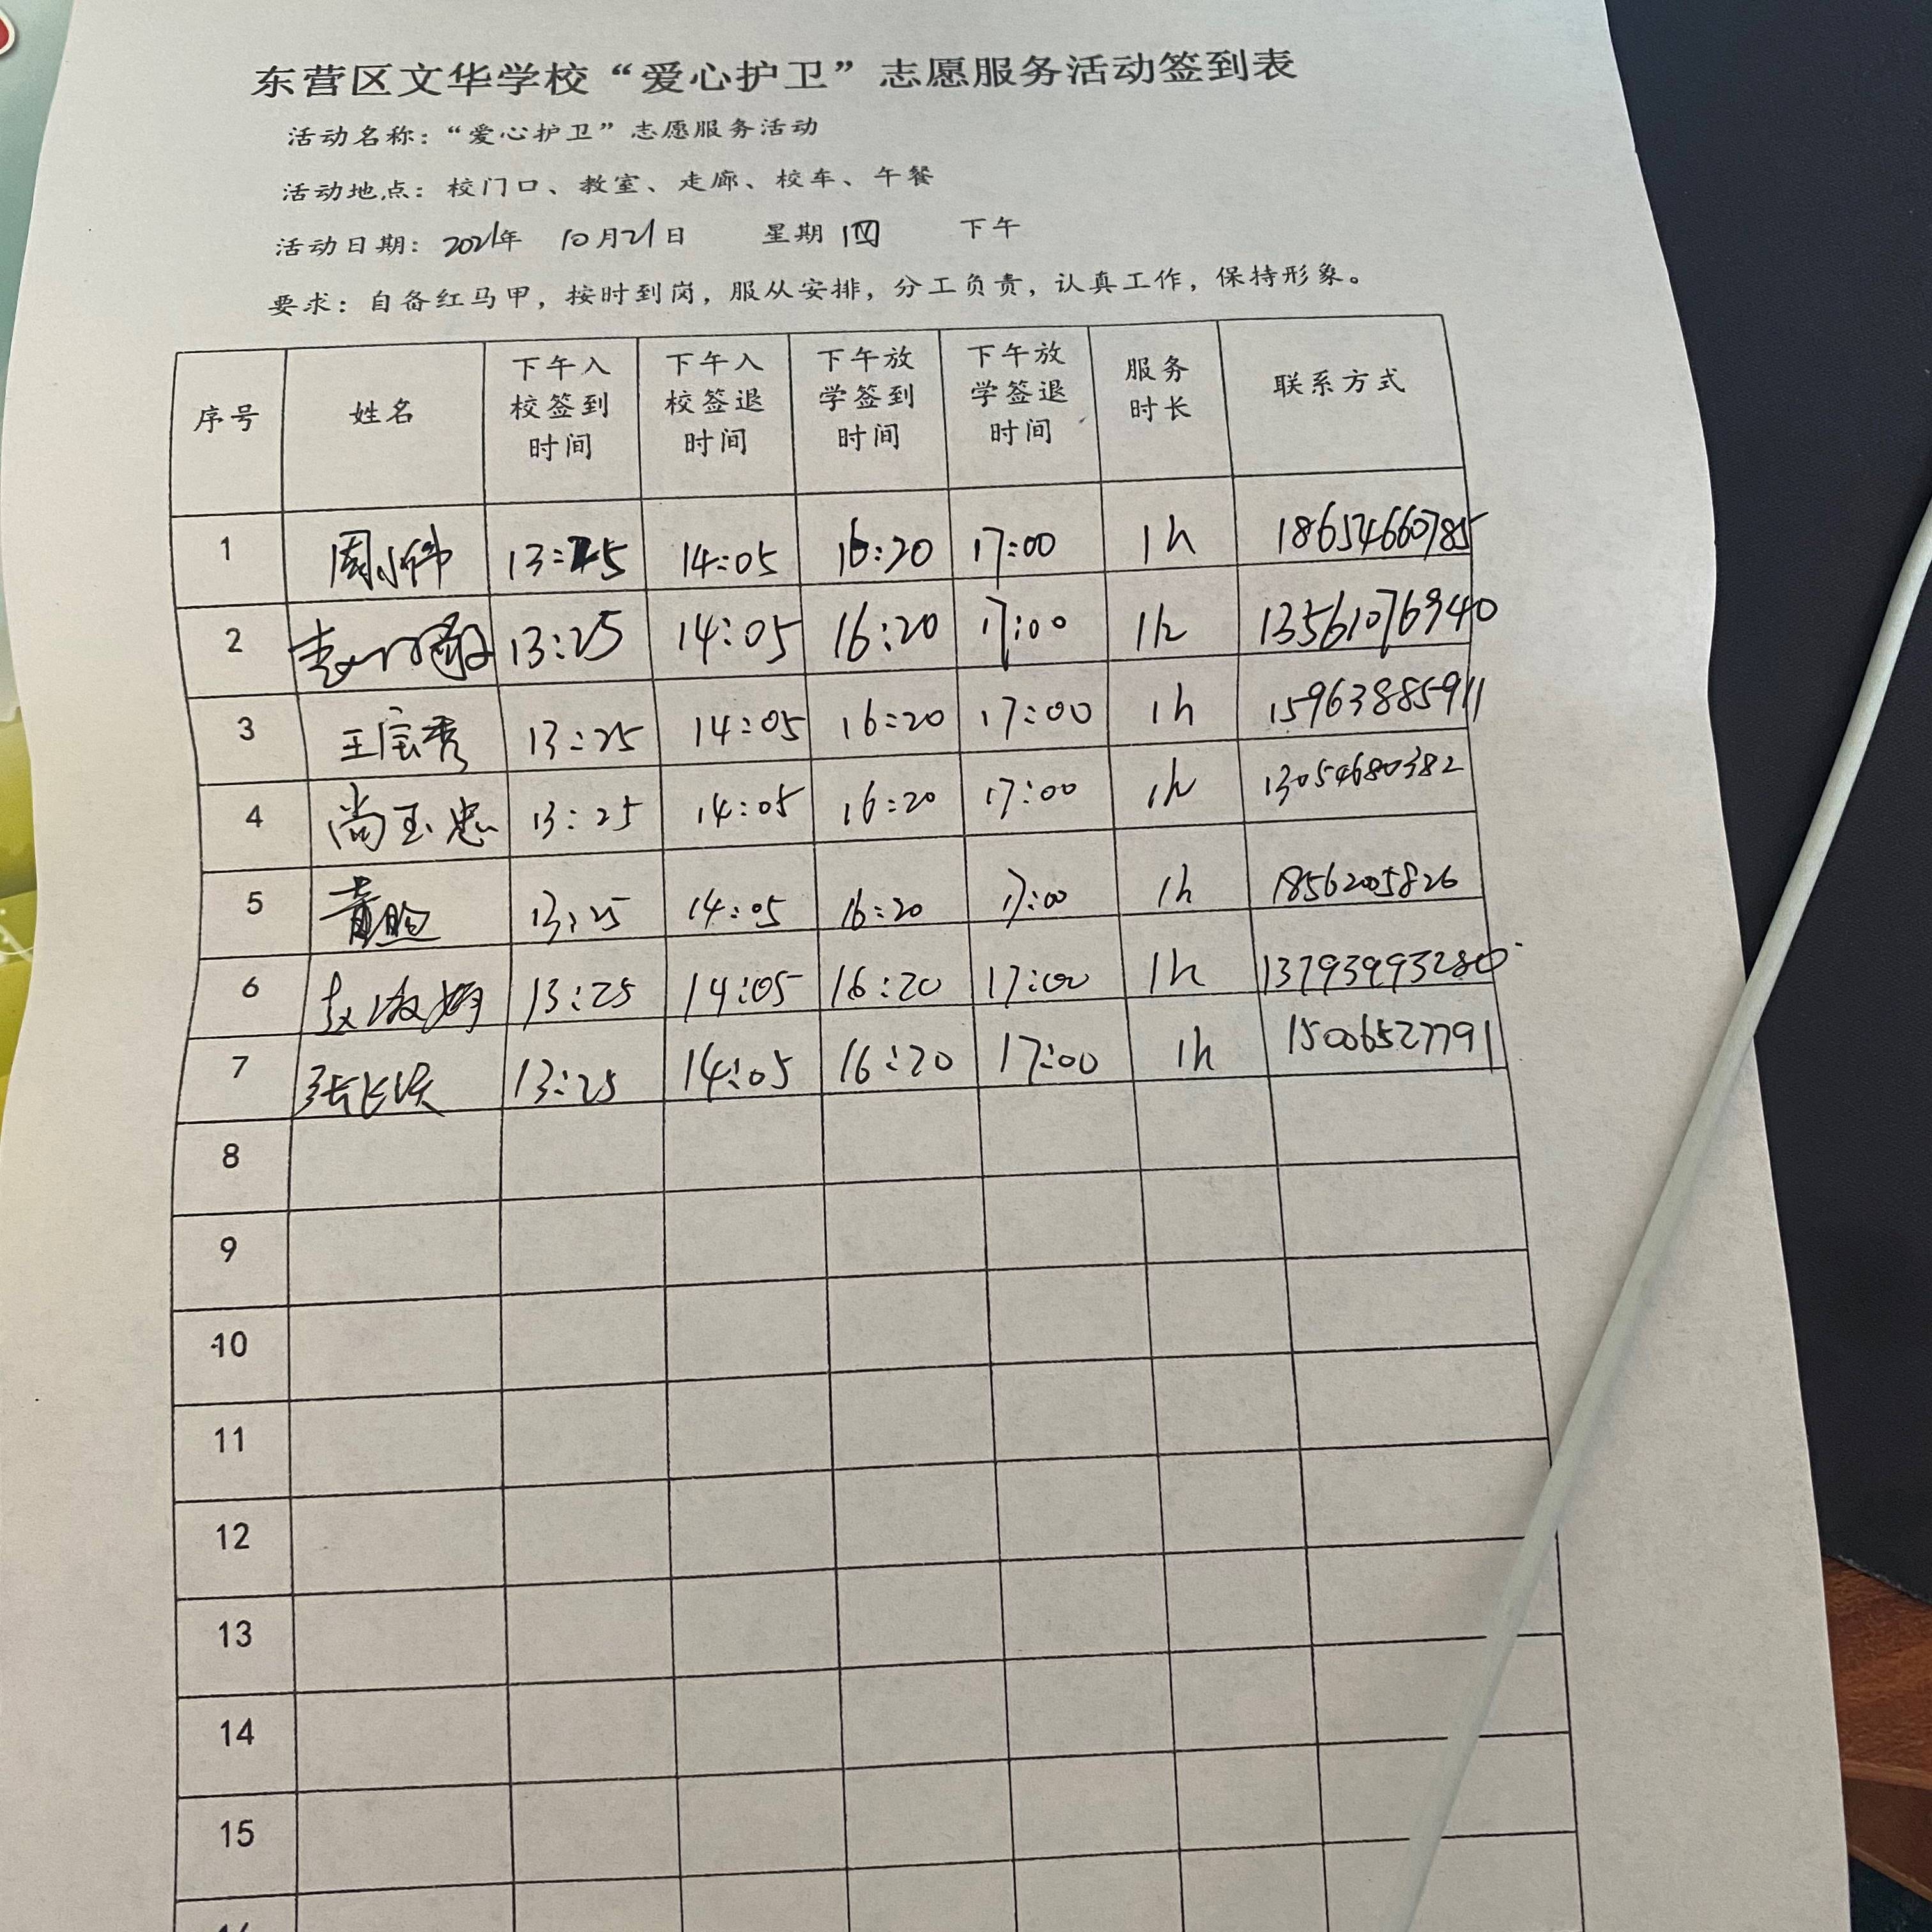 东营区文华学校“爱心护卫”志愿服务活动签到表
活动名称：“爱心护卫”志愿服务活动
活动地点：校门口、教室、走廊、校车、午餐
活动日期：2021年 10月21日 星期四 下午
要求：自备红马甲，按时到岗，服从安排，分工负责，认真工作，保持形象。
序号 姓名 下午入校签到时间 下午入校签退时间 下午放学签到时间 下午放学签退时间 服务时长 联系方式
1 周小伟 13:25 14:05 16:20 17:00 1h 18654660785
2 13:25 14:05 16:20 17:00 1h 13561076940
3 王宝秀 13:25 14:05 16:20 17:00 1h 15963885911
4 尚玉忠 13:25 14:05 16:20 17:00 1h 13054680382
5 13:25 14:05 16:20 17:00 1h 18562005826
6 13:25 14:05 16:20 17:00 1h 13793993280
7 13:25 14:05 16:20 17:00 1h 15006527791
8
9
10
11
12
13
14
15